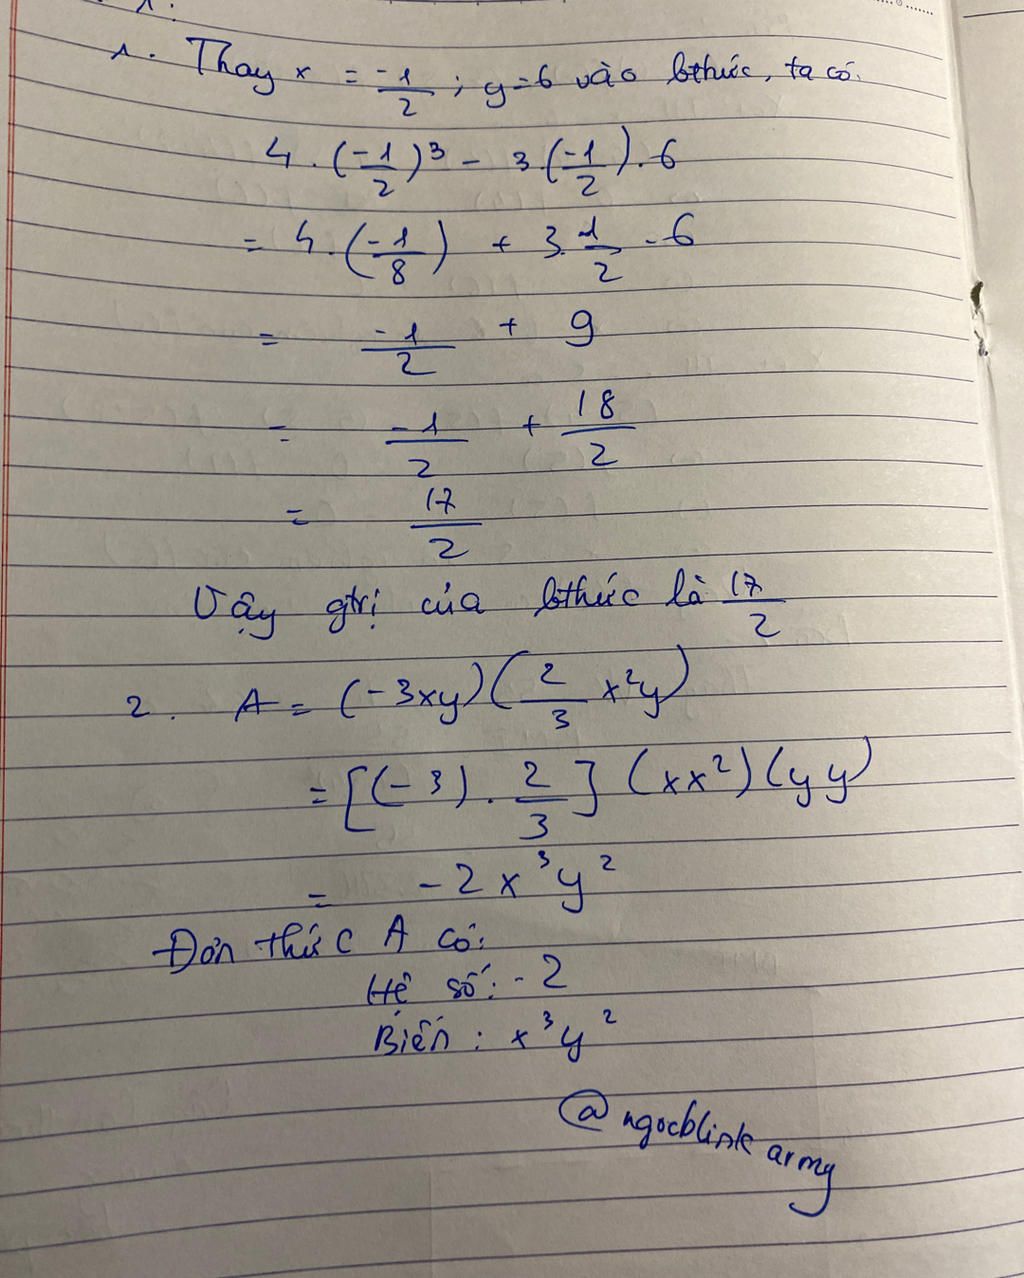 1. Thay x = -1/2 ; y=6 vào bthức, ta có:
4 . (-1/2)³ - 3.(-1/2).6
= 4.(-1/8) + 3.1/2.6
= -1/2 + 9
= -1/2 + 18/2
= 17/2
Vậy gtrị của bthức là 17/2
2. A = (-3xy)(2/3 x²y)
= [(-3).2/3] (xx²)(yy)
= -2x³y²
Đơn thức A có:
Hệ số: -2
Biến : x³y²
@ngocblink army